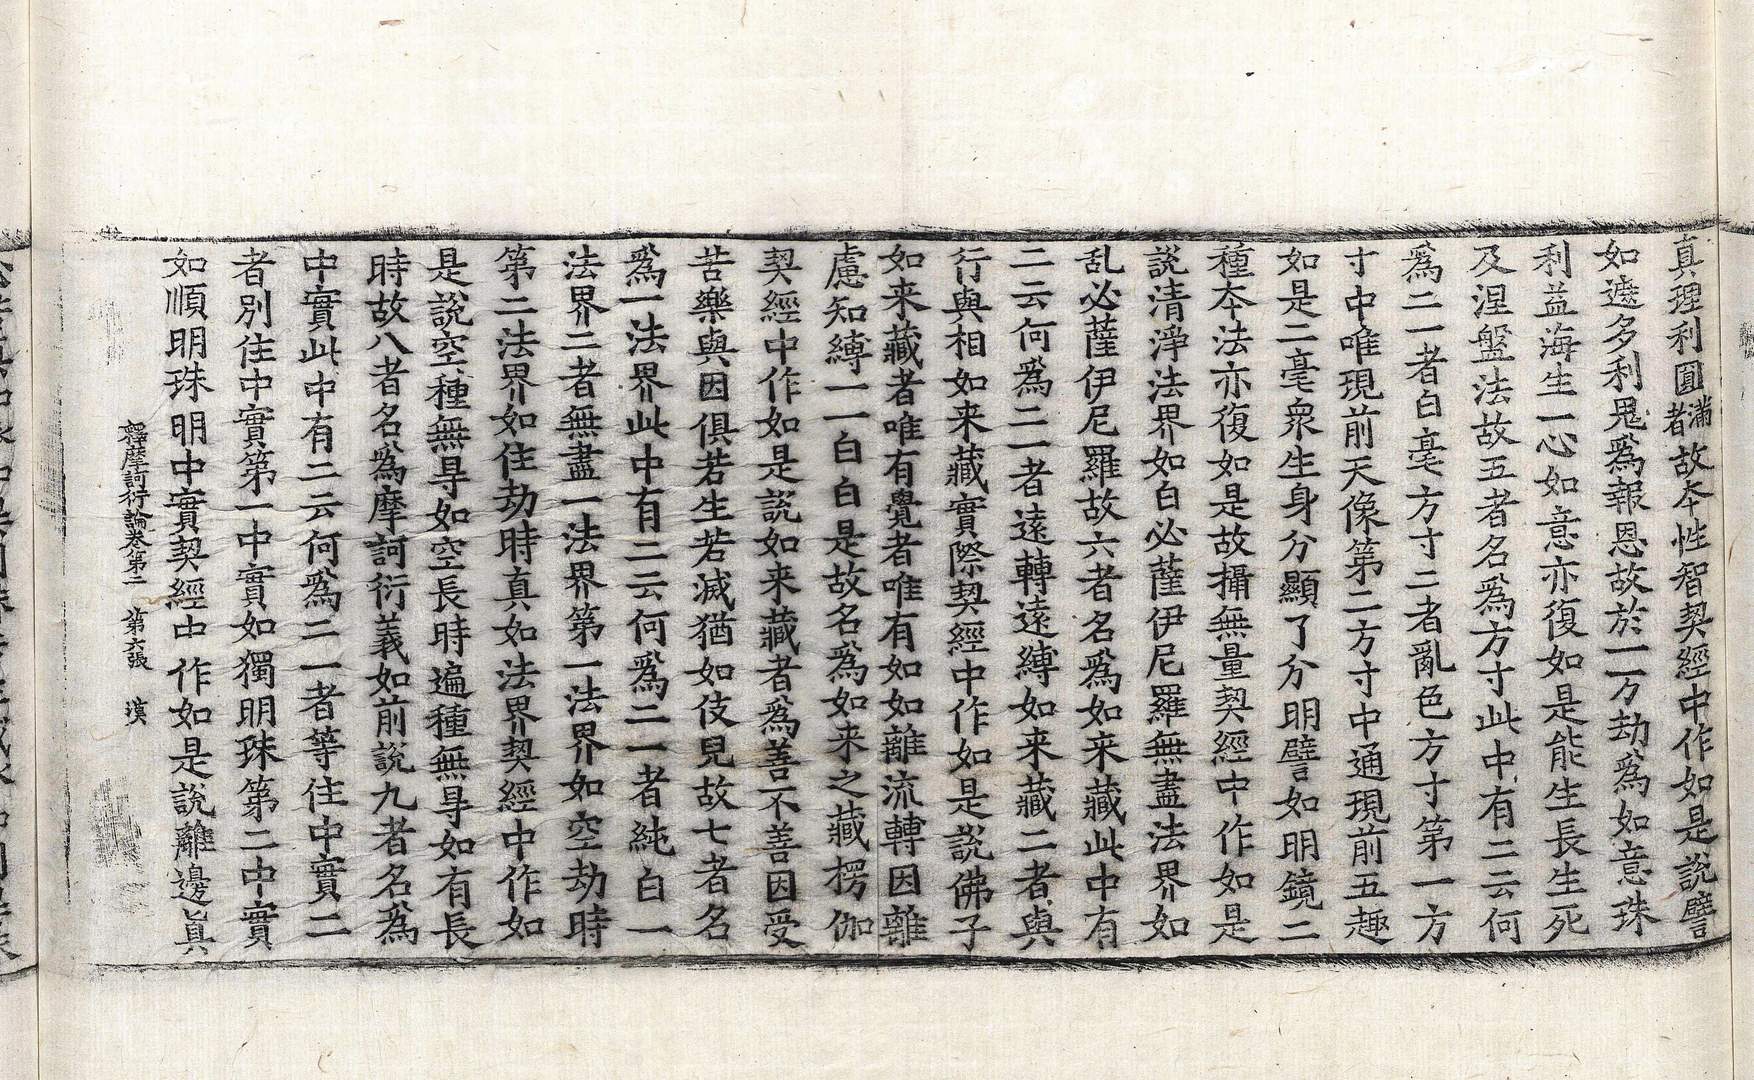 真理利圓滿者故夲性智契經中作如是說譬
如遮多利鬼爲報恩故於一一万劫爲如意珠
利益海生一心如意亦復如是能生長生死
及涅盤法故五者名爲方寸此中有二云何
爲二一者白毫方寸二者亂色方寸第一方
寸中唯現前天像第二方寸中通現前五趣
如是二毫衆生身分顯了分明譬如明鏡二
種夲法亦復如是故攝無量契經中作如是
說清淨法界如白必薩伊尼羅無盡法界如
乱必薩伊尼羅故六者名爲如来藏此中有
二云何爲二一者遠轉遠縛如来藏二者與
行與相如来藏實際契經中作如是說佛子
如来藏者唯有覺者唯有如如離流轉因離
慮知縛一一白白是故名爲如来之藏楞伽
契經中作如是說如来藏者爲善不善因受
苦樂與因俱若生若滅猶如伎兒故七者名
爲一法界此中有二云何爲二一者純白一
法界二者無盡一法界第一法界如空劫時
第二法界如住劫時真如法界契經中作如
是說空種無㝵如空長時遍種無㝵如有長
時故八者名爲摩訶衍義如前說九者名爲
中實此中有二云何爲二一者等住中實二
者別住中實第一中實如獨明珠第二中實
如順明珠明中實契經中作如是說離邊眞
釋摩訶衍論卷第二 第六張 漠